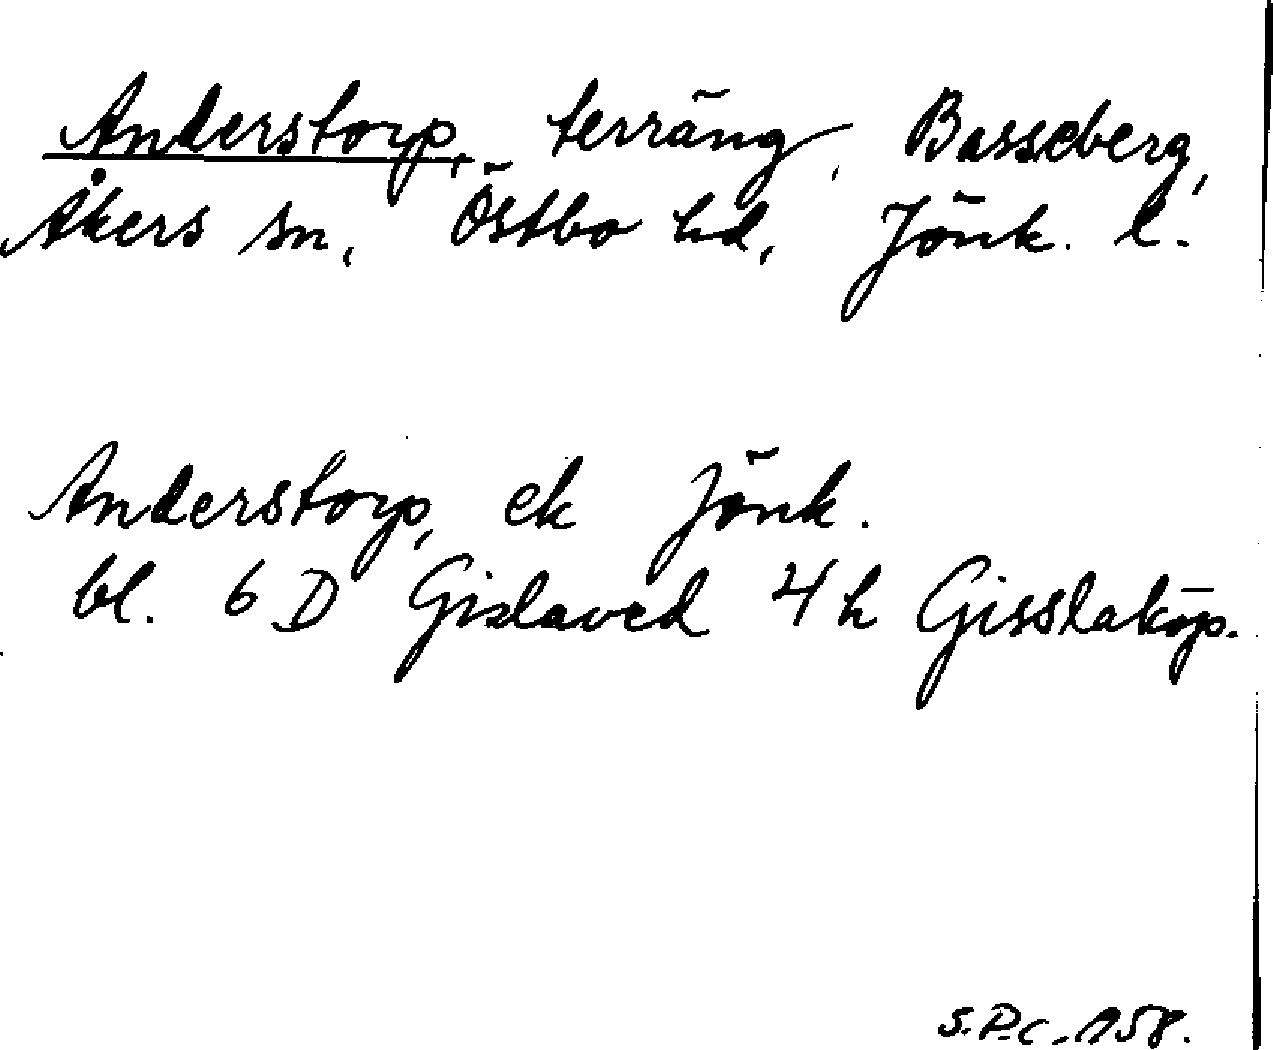 Anderstorp, terräng, Basseberg,
Åkers sn, Östbo hd, Jönk. l.
Anderstorp, ek Jönk.
bl. 6 D Gislaved 4 h Gisslaköp.
S.P.C. 1958.